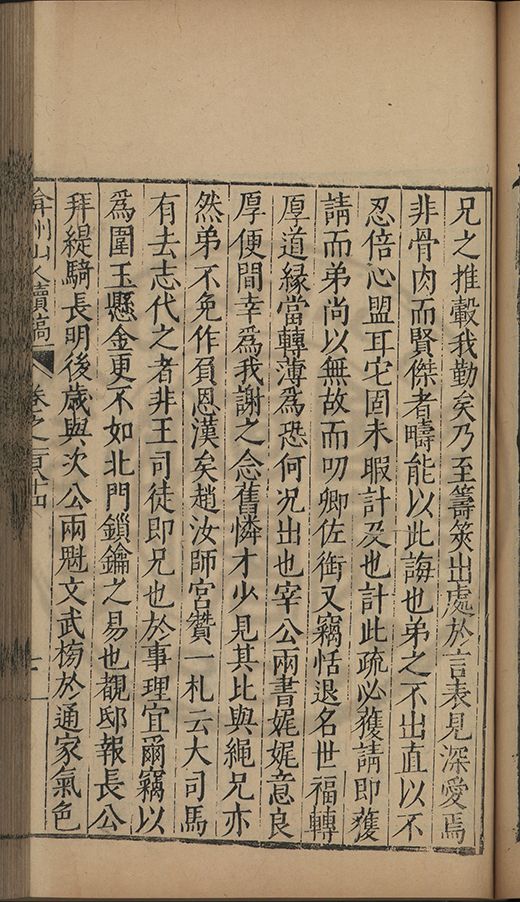 兄之推轂我勤矣乃至籌筴出處於言表見深愛焉
非骨肉而賢傑者疇能以此誨也弟之不出直以不
忍倍心盟耳它固未暇計及也計此疏必獲請即獲
請而弟尚以無故而叨卿佐銜又竊恬退名世福轉
厚道緣當轉薄為恐何况出也宰公兩書娓娓意良
厚便間幸為我謝之念舊憐才少見其比與繩兄亦
然弟不免作負恩漢矣趙汝師宫贊一札云大司馬
有去志代之者非王司徒即兄也於事理宜爾竊以
為圍玉懸金更不如北門鎖鑰之易也覩邸報長公
拜緹騎長明後歲與次公兩魁文武榜於通家氣色
弇州山人續稿 卷之一百